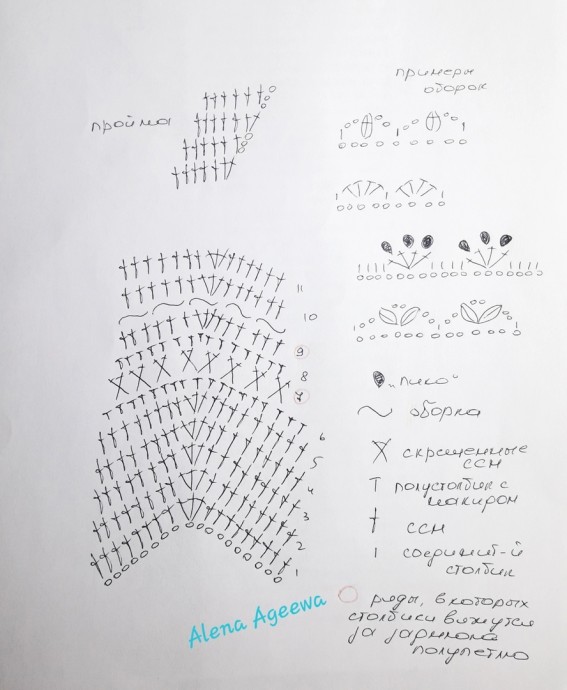 пройма
примеры
оборок
11
10
9
8
7
6
5
4
3
2
1
"пико"
оборка
скрещенные
ссн
полустолбик с
накиром
ссн
соединит-й
столбик
ряды, в которых
столбики вяжутся
за заднюю
полупетлю
Alena Ageewa